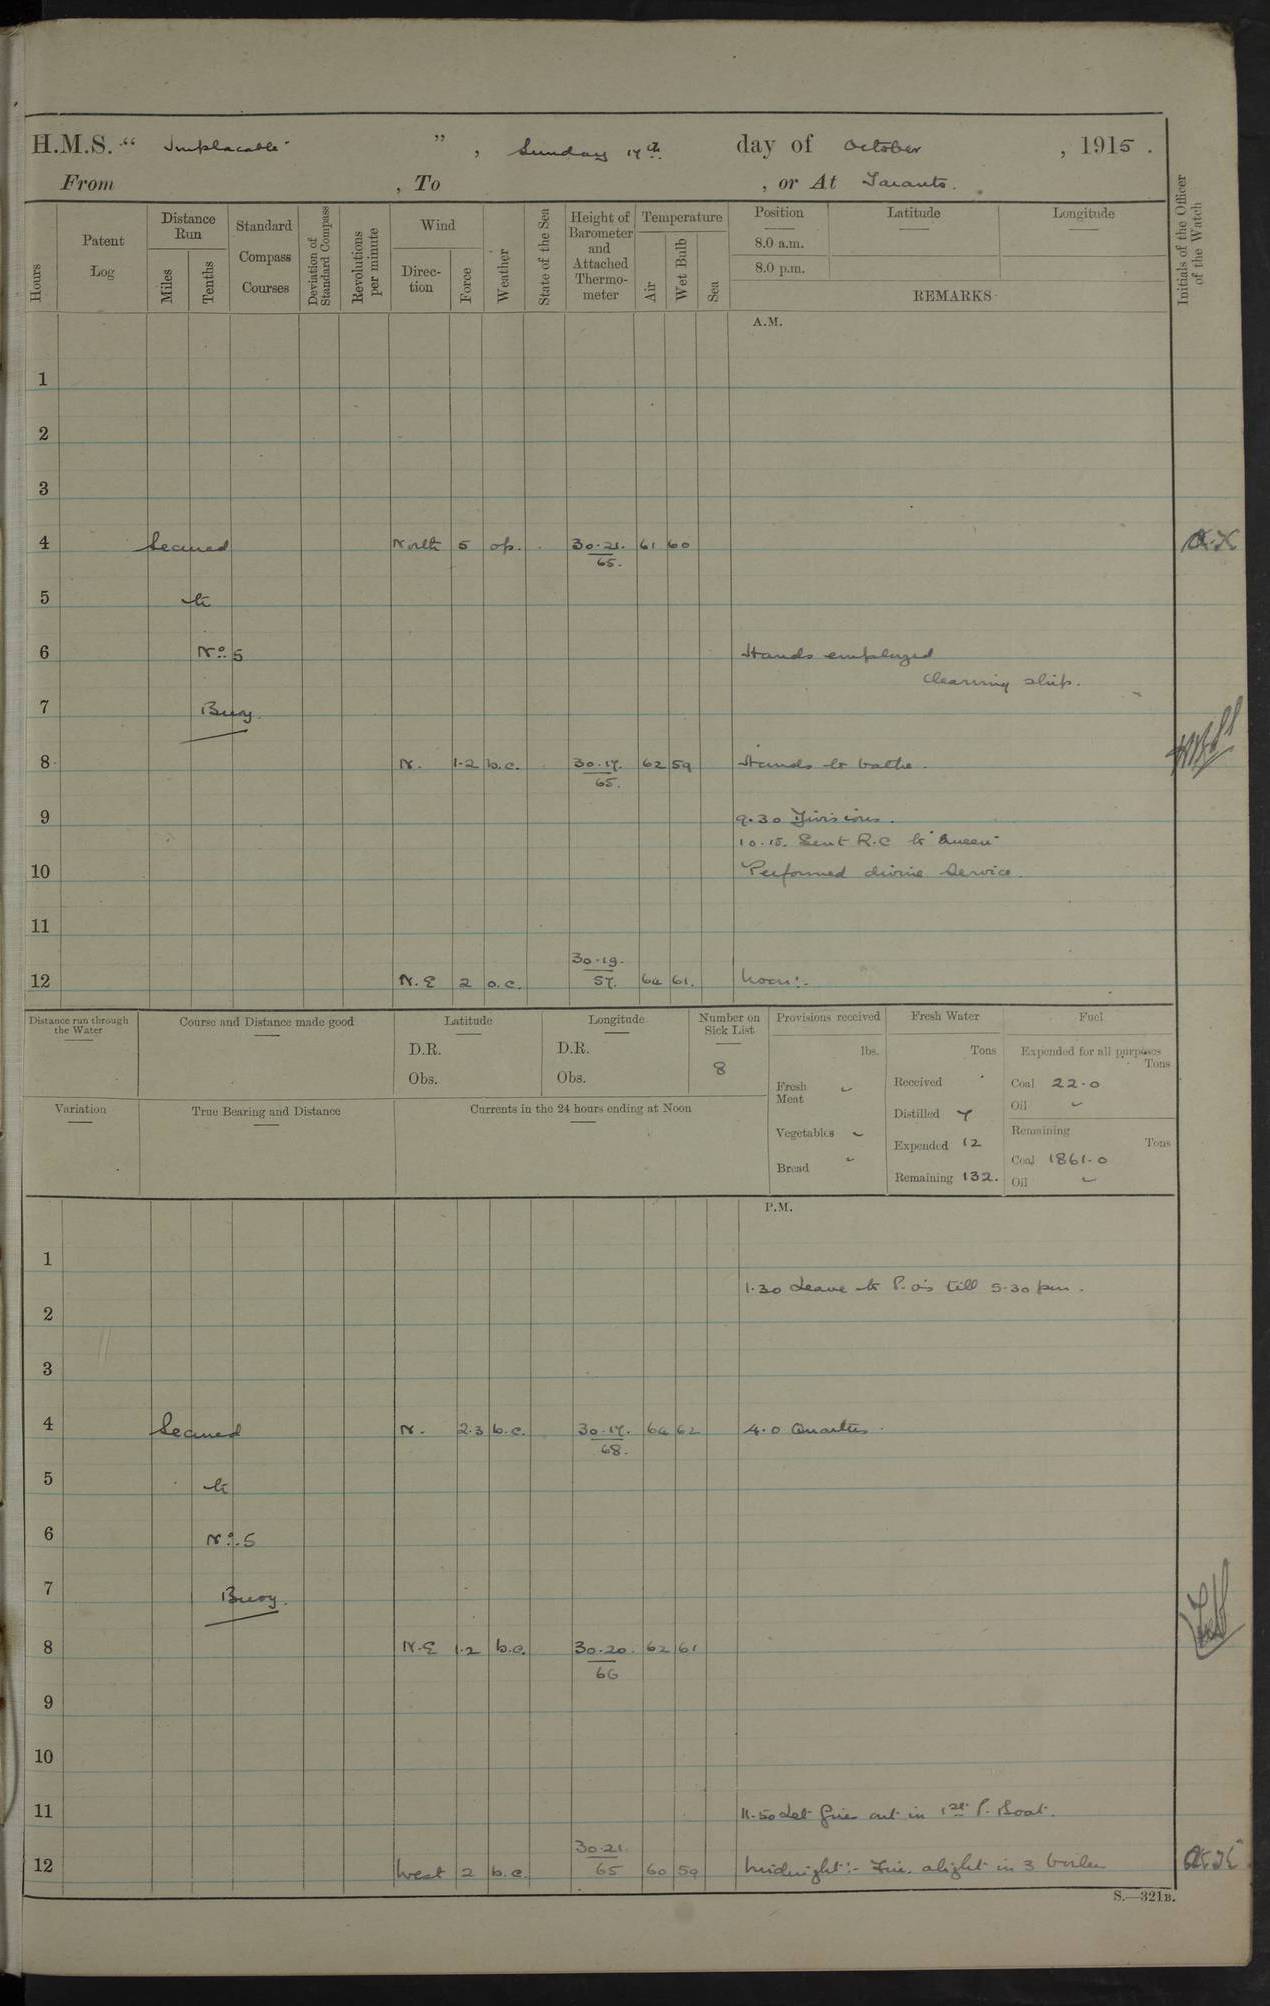 H.M.S. “ Implacable ” , Sunday 17th day of October , 1915 .
From , To , or At Taranto.
Hours
Patent Log
Distance Run
Miles
Tenths
Standard Compass Courses
Deviation of Standard Compass
Revolutions per minute
Wind
Direction
Force
Weather
State of the Sea
Height of Barometer and Attached Thermometer
Temperature
Air
Wet Bulb
Sea
Position
8.0 a.m.
8.0 p.m.
Latitude
Longitude
REMARKS
Initials of the Officer of the Watch
A.M.
1
2
3
4 Secured North 5 op. 30.21. 61 60
65.
5 to
6 No. 5 Hands employed
cleaning ship.
7 Buoy.
8 N. 1.2 b.c. 30.17. 62 59 Hands to bathe.
65.
9 9.30 Divisions.
10.15. Sent R.C to "Queen"
10 Performed divine Service.
11
30.19.
12 N.E 2 o.c. 57. 64 61. Noon:-
Distance run through the Water
Course and Distance made good
Latitude
D.R.
Obs.
Longitude
D.R.
Obs.
Number on Sick List
8
Provisions received
lbs.
Fresh Meat
Vegetables
Bread
Fresh Water
Tons
Received
Distilled 7
Expended 12
Remaining 132.
Fuel
Expended for all purposes
Tons
Coal 22.0
Oil
Remaining
Tons
Coal 1861.0
Oil
Variation
True Bearing and Distance
Currents in the 24 hours ending at Noon
P.M.
1
1.30 Leave to P.O's till 5.30 pm.
2
3
4 Secured N. 2.3 b.c. 30.17. 64 62 4.0 Quarters.
68.
5 to
6 No. 5
7 Buoy.
8 N.E 1.2 b.c. 30.20. 62 61
66
9
10
11 11.50 Let fires out in 1st P. Boat.
30.21.
12 West 2 b.c. 65 60 59 Midnight:- Fires alight in 3 boilers
S.—321B.